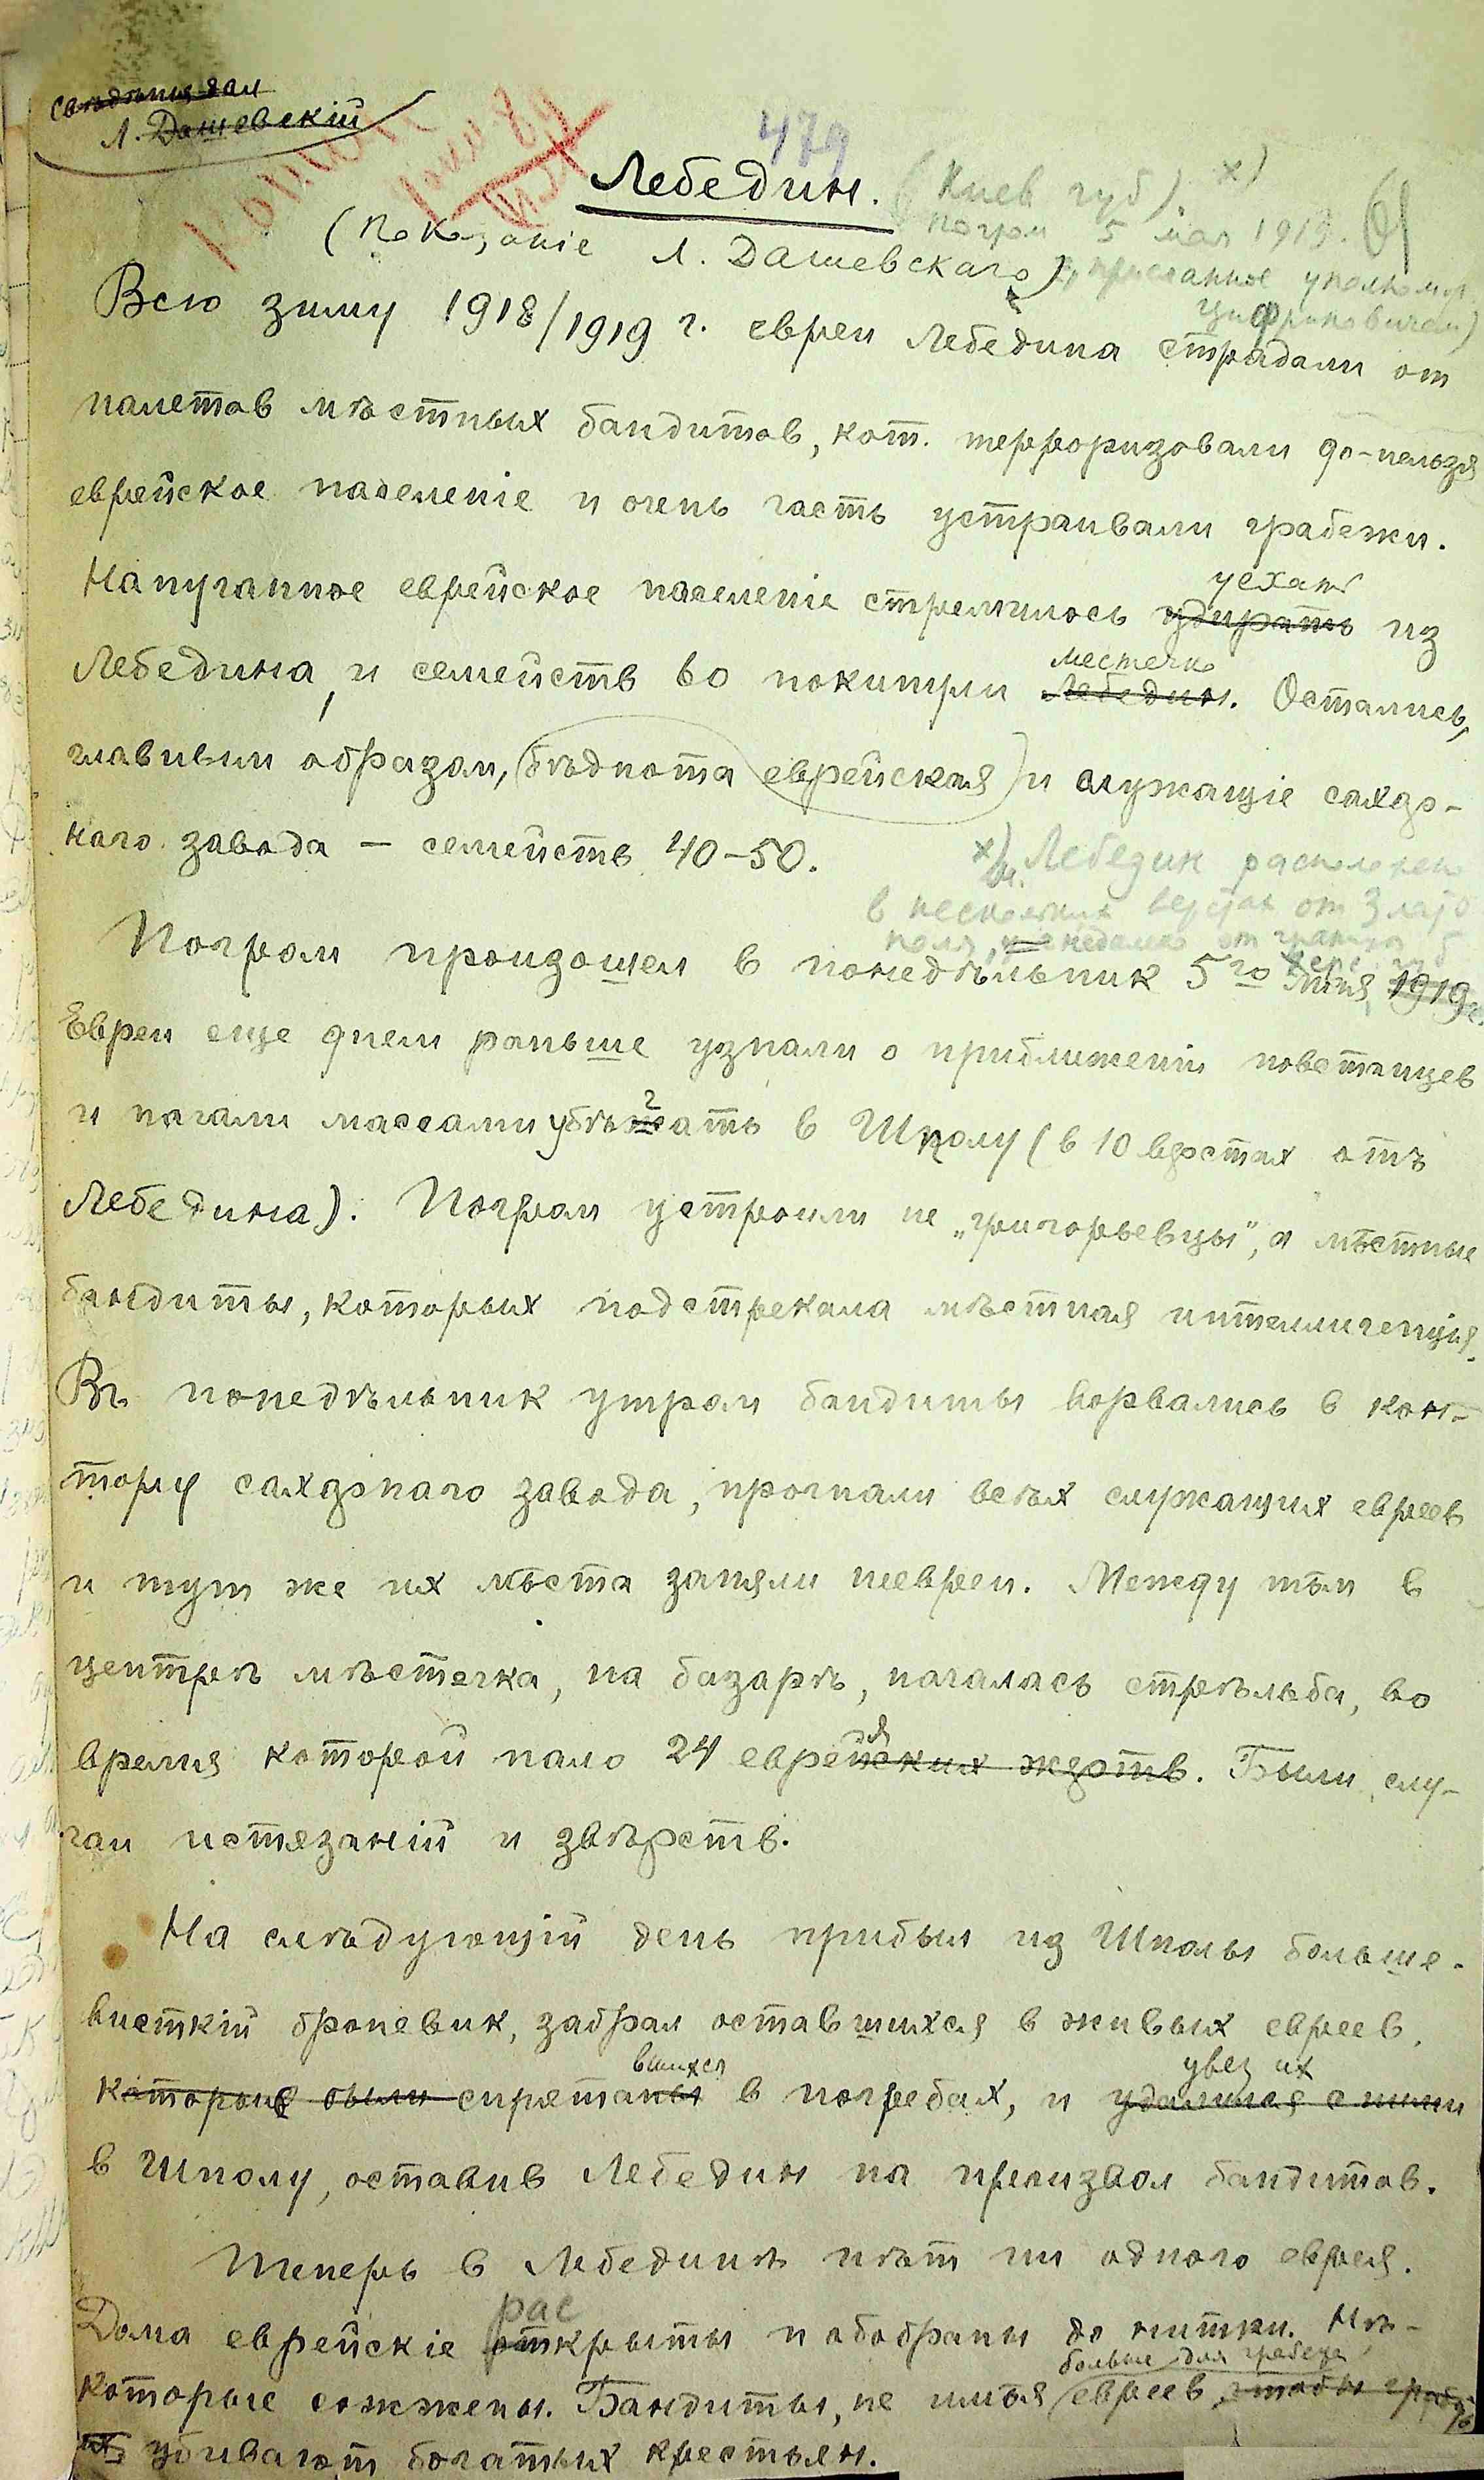 Сведения дал
Л. Дашевскій
479
Лебедин. (Киев губ) х)
погром 5 мая 1919.
(Показаніе Л. Дашевскаго), присланное уполномоч.
Всю зиму 1918/1919 г. евреи Лебедина страдали от
налетов мѣстных бандитов, кот. терроризовали до-нельзя
еврейское населеніе и очень часть устраивали грабежи.
Напуганное еврейское населеніе стремилось удирать уехать из
Лебедина, и семейств 60 покинули Лебедин. местечко Остались,
главным образом, бѣднота еврейская и служащіе сахар-
наго завода — семейств 40-50.
х) Лебедин расположен
в нескольких верстах от Злато
поля, недалеко от границы
Погром произошел в понедѣльник 5го мая 1919 г.
Евреи еще днем раньше узнали о приближеніи повстанцев
и начали массами убѣгать в Шполу (в 10 верстах отъ
Лебедина). Погром устроили не „григорьевцы", а мѣстные
бандиты, которых подстрекала мѣстная интеллигенція.
Въ понедѣльник утром бандиты ворвались в кон-
тору сахарнаго завода, прогнали всѣх служащих евреев
и тут же их мѣста заняли неевреи. Между тѣм в
центрѣ мѣстечка, на базарѣ, началась стрѣльба, во
время которой пало 24 еврейских жертв. Были слу-
чаи истязаній и звѣрств.
На слѣдующій день прибыл из Шполы больше-
висткій броневик, забрал оставшихся в живых евреев,
которые были спрятаны вшихся в погребах, и удалился с ними увез их
в Шполу, оставив Лебедин на произвол бандитов.
Теперь в Лебединѣ нѣт ни одного еврея.
Дома еврейскіе открыты рас и обобраны до нитки. Нѣ-
которые сожжены. Бандиты, не имѣя больше для грабежа евреев, чтобы грабить
их убивают богатых крестьян.